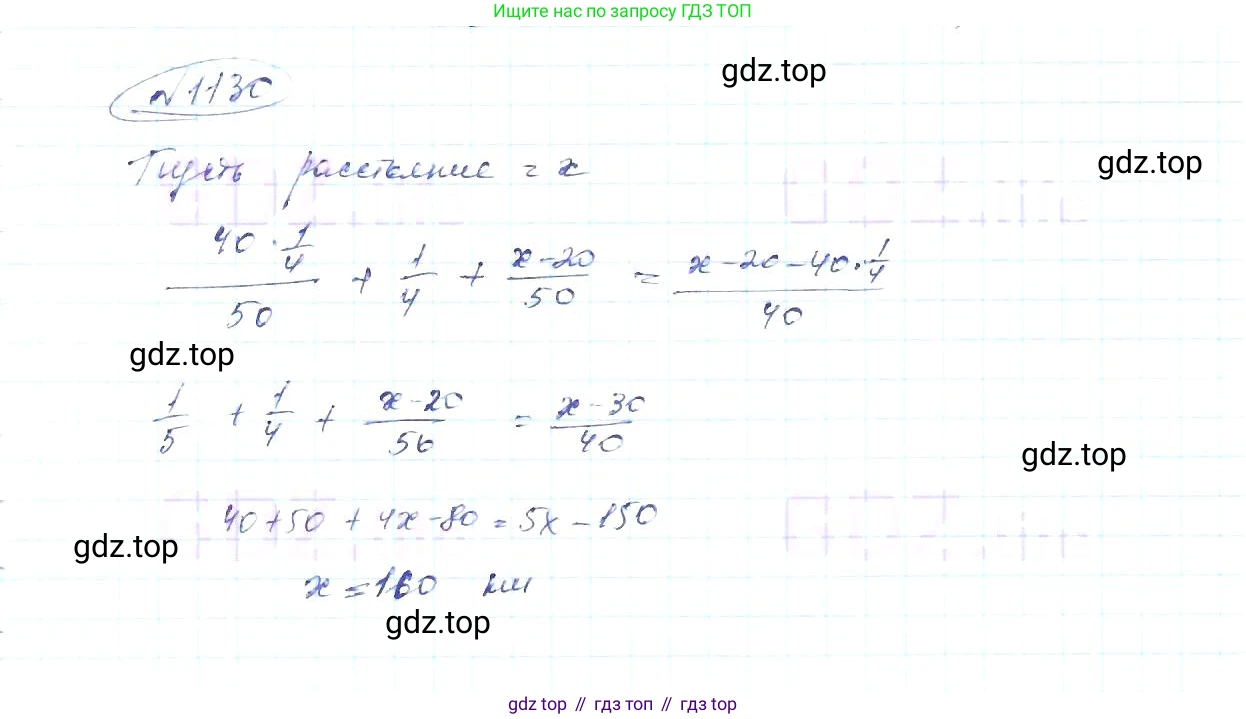 Ищите нас по запросу ГДЗ ТОП
№1130
gdz.top
Пусть расстояние = x
gdz.top
(40 · 1/4)/50 + 1/4 + (x-20)/50 = (x-20-40·1/4)/40
gdz.top
1/5 + 1/4 + (x-20)/50 = (x-30)/40
gdz.top
40+50+4x-80=5x-150
gdz.top
x=160 км
gdz.top
gdz top // гдз топ // gdz top